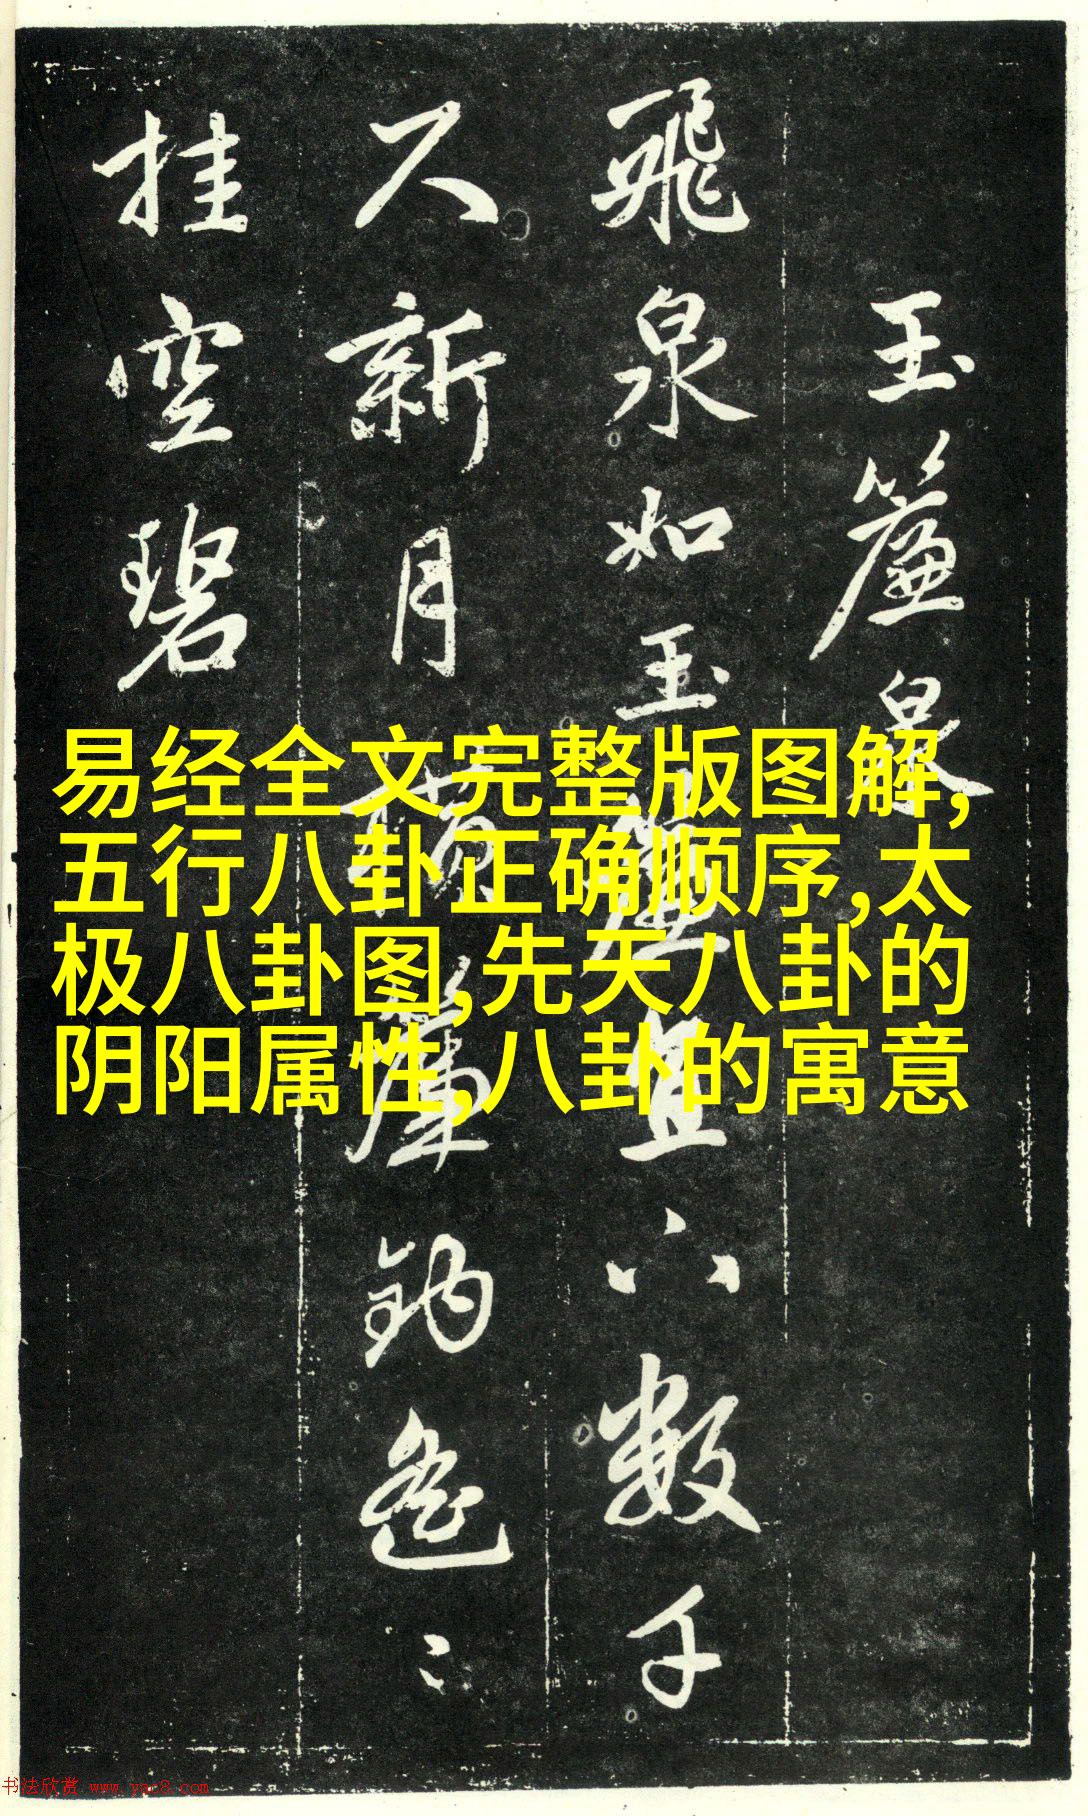 玉簾泉
飛泉如玉簾直下數千
尺新月橫簾鈎遙〻
挂空碧
易经全文完整版图解,
五行八卦正确顺序,太
极八卦图,先天八卦的
阴阳属性,八卦的寓意
书法欣赏 www.yac8.com